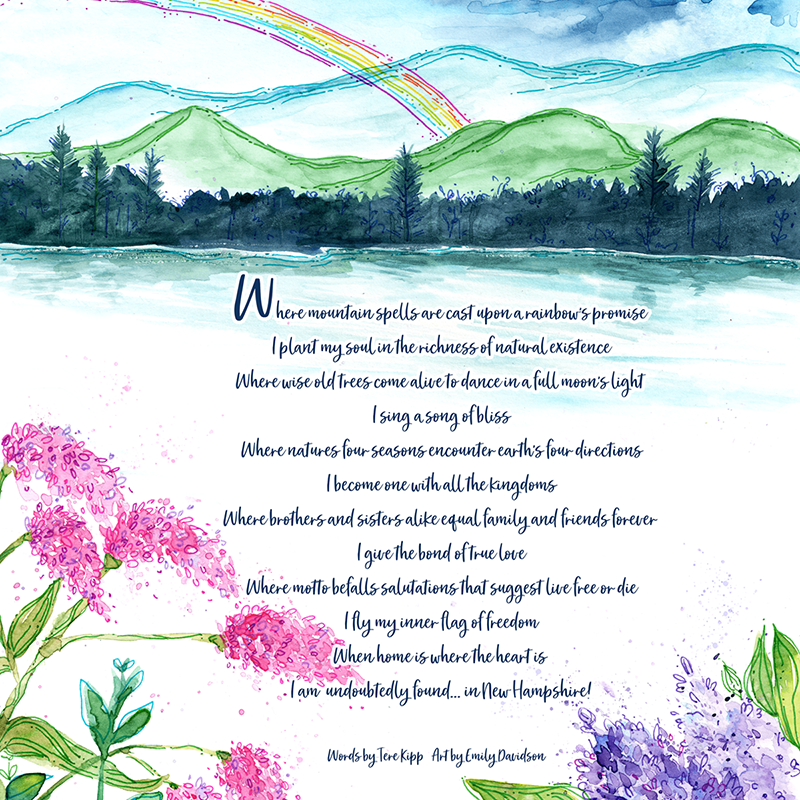 Where mountain spells are cast upon a rainbow's promise
I plant my soul in the richness of natural existence
Where wise old trees come alive to dance in a full moon's light
I sing a song of bliss
Where natures four seasons encounter earth's four directions
I become one with all the kingdoms
Where brothers and sisters alike equal family and friends forever
I give the bond of true love
Where motto befalls salutations that suggest live free or die
I fly my inner flag of freedom
When home is where the heart is
I am undoubtedly found... in New Hampshire!
Words by Tere Kipp Art by Emily Davidson